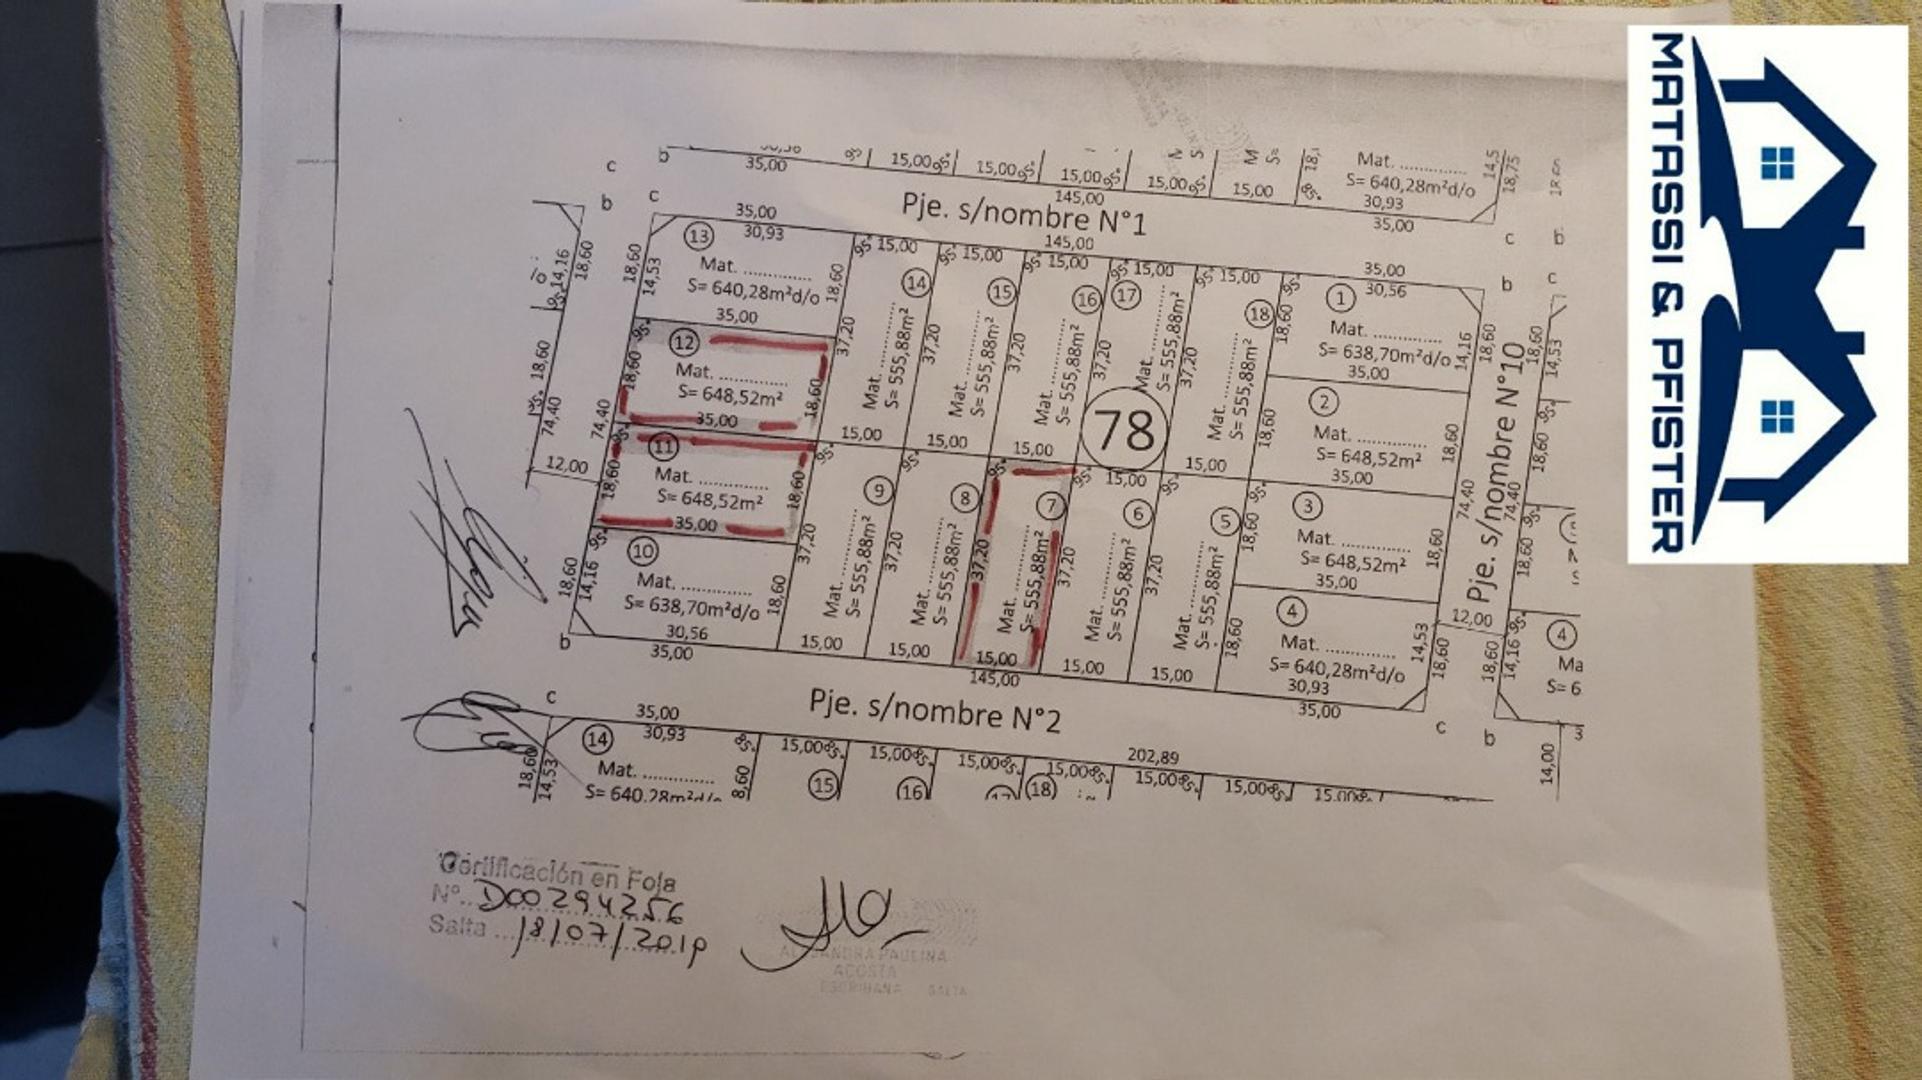 MATASSI & PFISTER
c b 35,00 15,00 15,00 15,00 15,00 15,00 145,00
Mat. ..............
S= 640,28m²d/o
30,93
35,00
14,5
18,75
Pje. s/nombre N°1
145,00
b c 35,00
30,93
13
Mat. ..............
S= 640,28m²d/o
35,00
18,60
14,53
18,60
12
Mat. ..............
S= 648,52m²
35,00
18,60
18,60
11
Mat. ..............
S= 648,52m²
35,00
18,60
18,60
10
Mat. ..............
S= 638,70m²d/o
30,56
35,00
18,60
14,16
18,60
74,40
12,00
14,16
18,60
18,60
74,40
15,00
14
Mat. ..............
S= 555,88m²
37,20
15,00
15,00
15
Mat. ..............
S= 555,88m²
37,20
15,00
15,00
16
Mat. ..............
S= 555,88m²
37,20
15,00
15,00
17
Mat. ..............
S= 555,88m²
37,20
15,00
15,00
18
Mat. ..............
S= 555,88m²
37,20
15,00
78
9
Mat. ..............
S= 555,88m²
37,20
15,00
8
Mat. ..............
S= 555,88m²
37,20
15,00
7
Mat. ..............
S= 555,88m²
37,20
15,00
6
Mat. ..............
S= 555,88m²
37,20
15,00
5
Mat. ..............
S= 555,88m²
37,20
15,00
35,00
30,56
1
Mat. ..............
S= 638,70m²d/o
35,00
18,60
14,16
18,60
2
Mat. ..............
S= 648,52m²
35,00
18,60
18,60
3
Mat. ..............
S= 648,52m²
35,00
18,60
18,60
4
Mat. ..............
S= 640,28m²d/o
30,93
35,00
18,60
14,53
18,60
74,40
Pje. s/nombre N°10
12,00
18,60
14,53
18,60
74,40
18,60
14,16
18,60
4
Ma
S= 6
145,00
Pje. s/nombre N°2
c b
c 35,00
30,93
14
Mat. ..............
S= 640,28m²d/o
18,60
14,53
8,60
15,00
15,00
15,00
15,00
15,00
15,00
15,00
202,89
15
16
17
18
14,00
Certificación en Foja
N° D00294256
Salta 18/07/2019
ALEJANDRA PAULINA
ACOSTA
ESCRIBANA SALTA